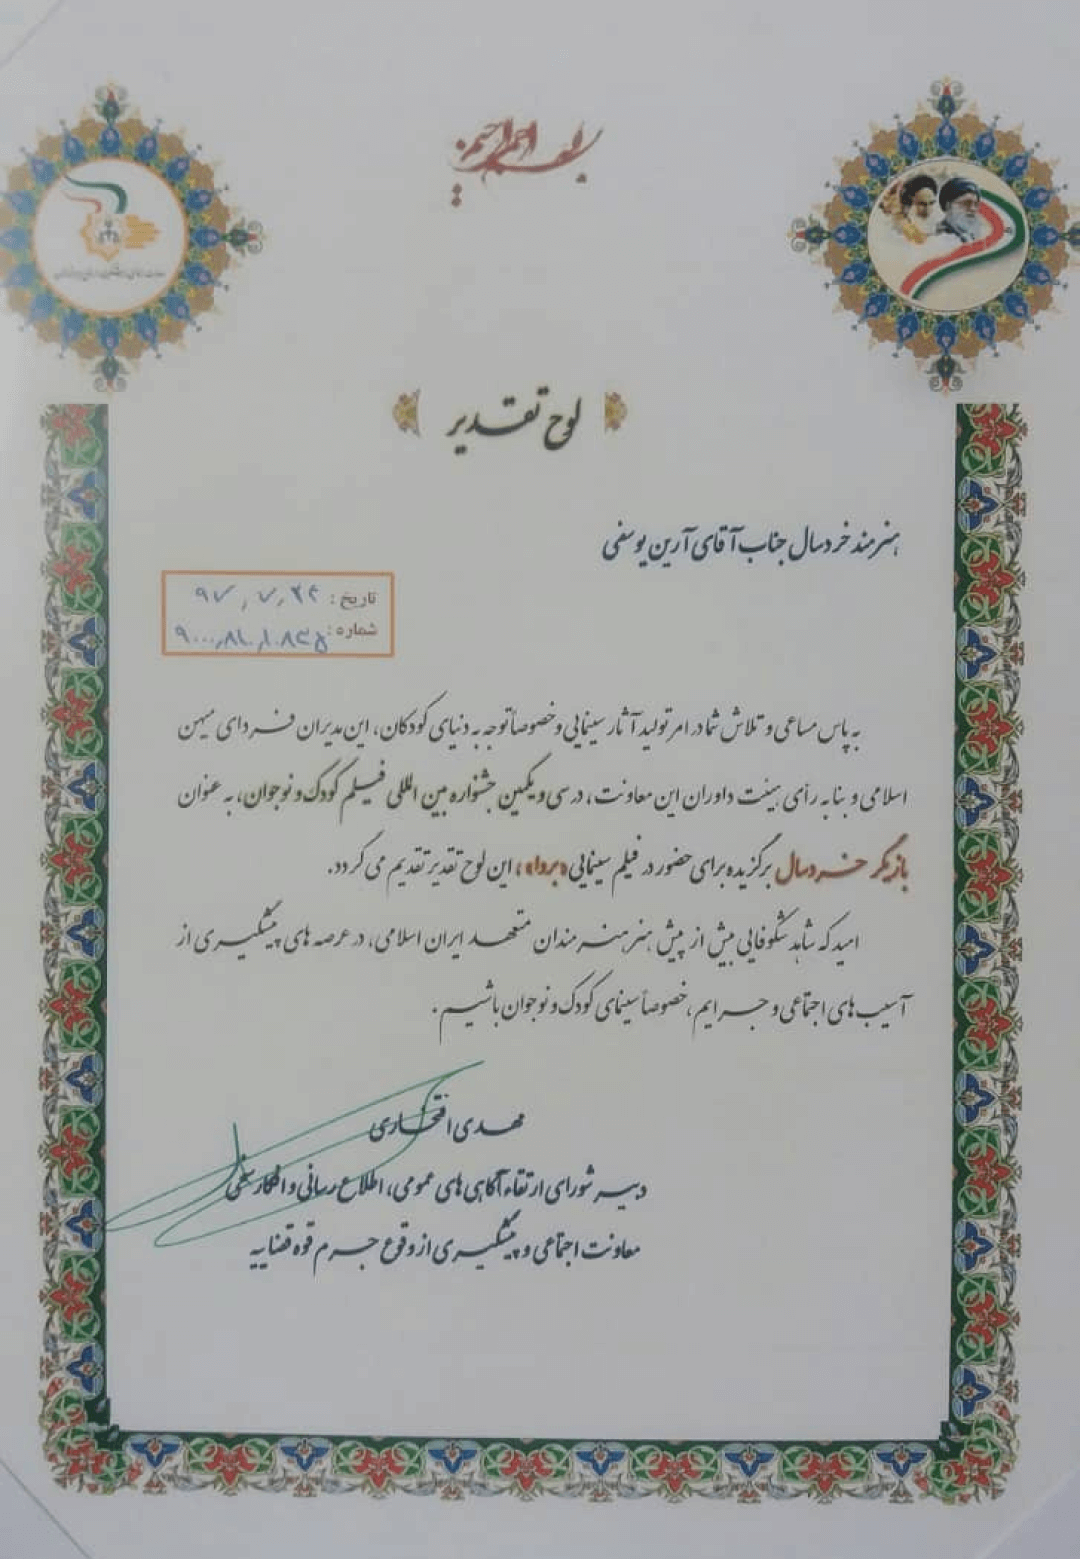 بسم الله الرحمن الرحیم
لوح تقدیر
هنرمند خردسال جناب آقای آرین یوسفی
تاریخ: ۹۷٫۷٫۲۴
شماره: ۹۰۰۰٫۸۱۰٫۱۰۸۳۵
به پاس مساعی و تلاش شما در امر تولید آثار سینمایی و خصوصاً توجه به دنیای کودکان، این مدیران فردای میهن
اسلامی و بنا به رأی هیئت داوران این معاونت، در سی و یکمین جشنواره بین المللی فیلم کودک و نوجوان، به عنوان
بازیگر خردسال برگزیده برای حضور در فیلم سینمایی ، این لوح تقدیر تقدیم می گردد.
امید که شاهد شکوفایی بیش از پیش هنر هنرمندان متعهد ایران اسلامی، در عرصه های پیشگیری از
آسیب های اجتماعی و جرایم، خصوصاً سینمای کودک و نوجوان باشیم.
مهدی افتخاری
دبیر شورای ارتقاء آگاهی های عمومی، اطلاع رسانی و افکارسنجی
معاونت اجتماعی و پیشگیری از وقوع جرم قوه قضاییه